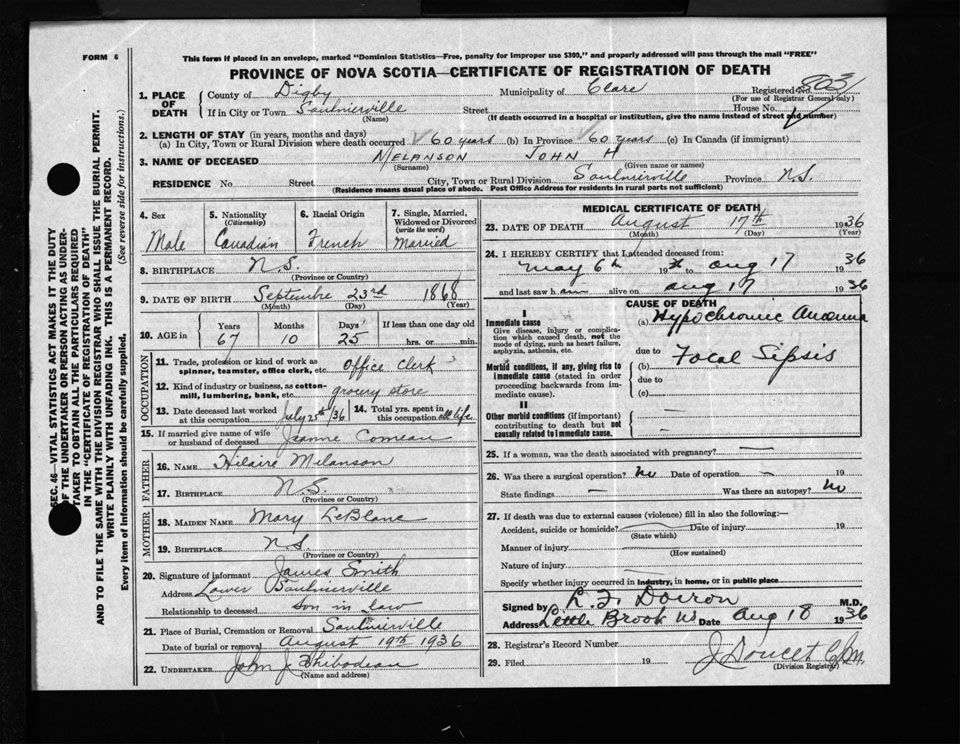 FORM 6
This form if placed in an envelope, marked "Dominion Statistics—Free, penalty for improper use $300," and properly addressed will pass through the mail "FREE"
PROVINCE OF NOVA SCOTIA—CERTIFICATE OF REGISTRATION OF DEATH
1. PLACE OF DEATH
County of Digby Municipality of Clare Registered No. 803
(For use of Registrar General only)
If in City or Town Saulnierville Street House No.
(Name) (If death occurred in a hospital or institution, give the name instead of street and number)
2. LENGTH OF STAY (in years, months and days)
(a) In City, Town or Rural Division where death occurred 60 years (b) In Province 60 years (c) In Canada (if immigrant)
3. NAME OF DECEASED MELANSON JOHN H
(Surname) (Given name or names)
RESIDENCE No Street City, Town or Rural Division Saulnierville Province N.S.
(Residence means usual place of abode. Post Office Address for residents in rural parts not sufficient)
4. Sex Male
5. Nationality (Citizenship) Canadian
6. Racial Origin French
7. Single, Married, Widowed or Divorced (write the word) Married
8. BIRTHPLACE N.S.
(Province or Country)
9. DATE OF BIRTH Septembre 23rd 1868
(Month) (Day) (Year)
10. AGE in Years Months Days If less than one day old
67 10 25 hrs. or min.
OCCUPATION
11. Trade, profession or kind of work as spinner, teamster, office clerk, etc. Office Clerk
12. Kind of industry or business, as cotton-mill, lumbering, bank, etc. grocery store
13. Date deceased last worked at this occupation July 25th/36 14. Total yrs. spent in this occupation all life
15. If married give name of wife or husband of deceased Jeanne Comeau
FATHER
16. NAME Hilaire Melanson
17. BIRTHPLACE N.S.
(Province or Country)
MOTHER
18. MAIDEN NAME Mary LeBlanc
19. BIRTHPLACE N.S.
(Province or Country)
20. Signature of informant James Smith
Address Lower Saulnierville
Relationship to deceased son in law
21. Place of Burial, Cremation or Removal Saulnierville
Date of burial or removal August 19th 1936
22. UNDERTAKER John J Thibodeau
(Name and address)
MEDICAL CERTIFICATE OF DEATH
23. DATE OF DEATH August 17th 1936
(Month) (Day) (Year)
24. I HEREBY CERTIFY that I attended deceased from:
May 6th 19 to Aug 17 1936
and last saw h alive on Aug 17 1936
CAUSE OF DEATH
I
Immediate cause
Give disease, injury or complication which caused death, not the mode of dying, such as heart failure, asphyxia, asthenia, etc.
(a) Hypochromic Anaemia
due to
Morbid conditions, if any, giving rise to immediate cause (stated in order proceeding backwards from immediate cause).
(b) Focal Sipsis
due to
(c)
II
Other morbid conditions (if important) contributing to death but not causally related to immediate cause.
25. If a woman, was the death associated with pregnancy? —
26. Was there a surgical operation? No Date of operation — 19
State findings — Was there an autopsy? No
27. If death was due to external causes (violence) fill in also the following:—
Accident, suicide or homicide? Date of injury 19
(State which)
Manner of injury
(How sustained)
Nature of injury
Specify whether injury occurred in Industry, in home, or in public place
Signed by L. F. Doiron M.D.
Address Little Brook NS Date Aug 18 1936
28. Registrar's Record Number
29. Filed 19 J Doucet
(Division Registrar)
SEC. 46—VITAL STATISTICS ACT MAKES IT THE DUTY
OF THE UNDERTAKER OR PERSON ACTING AS UNDER-
TAKER TO OBTAIN ALL THE PARTICULARS REQUIRED
IN THE "CERTIFICATE OF REGISTRATION OF DEATH"
AND TO FILE THE SAME WITH THE DIVISION REGISTRAR WHO SHALL ISSUE THE BURIAL PERMIT.
WRITE PLAINLY WITH UNFADING INK. THIS IS A PERMANENT RECORD.
Every item of information should be carefully supplied. (See reverse side for instructions.)